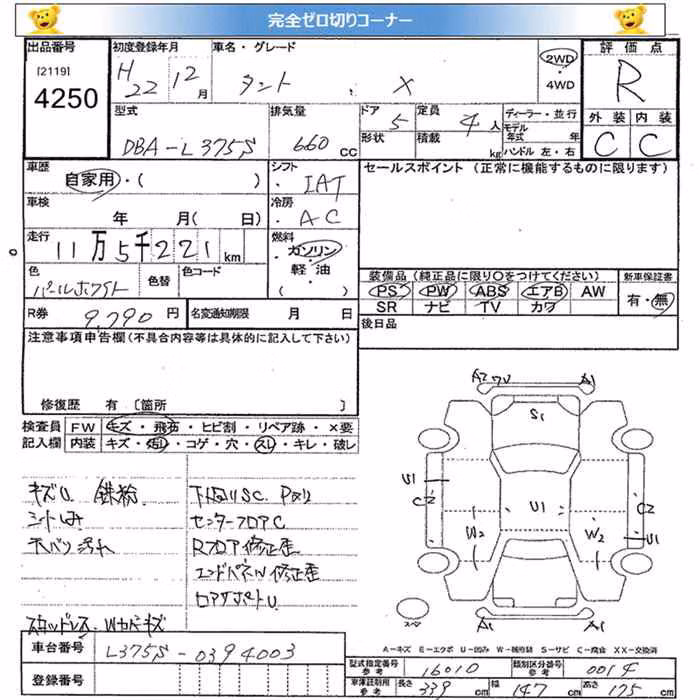 完全ゼロ切りコーナー
出品番号
[2119]
4250
初度登録年月
H22 12月
車名・グレード
タント X
2WD
・
4WD
評価点
R
型式
DBA-L375S
排気量
660 cc
ドア
5
形状
定員
4人
積載
kg
ディーラー・並行
モデル年式 年
ハンドル 左・右
外装 内装
C C
車歴
自家用・( )
シフト
IAT
セールスポイント (正常に機能するものに限ります)
車検
年 月( 日)
冷房
AC
走行
11万5千221km
燃料
ガソリン
軽・油
( )
色
パールホワイト
色替
色コード
装備品 (純正品に限り○をつけてください)
PS PW ABS エアB AW
SR ナビ TV カワ
新車保証書
有・無
R券
9,790 円
名変通知期限 月 日
後日品
注意事項申告欄(不具合箇所等は具体的に記入して下さい)
修復歴 有 〔箇所 〕
検査員
記入欄
FW キズ・飛石・ヒビ割・リペア跡・×要
内装 キズ・汚レ・コゲ・穴・スレ・キレ・破レ
キズU 鉄粉
シートしみ
天バリ汚れ
下廻りSC Pメリ
センターフロアC
Rフロア修正歪
エンドパネル修正歪
ロアサポートU
スタッドレス. Wカバーキズ
A2 ワU A1
S1
U1
C2
U1
C2
W2
W2
U1
A1
A1
スペア
A-キズ E-エクボ U-凹み W-補修跡 S-サビ C-腐食 XX-交換済
車台番号
L375S-0394003
登録番号
型式指定番号
参考
16010
類別区分番号
参考
0014
車庫証明用
参考
長さ 339cm
幅 147cm
高さ 175cm